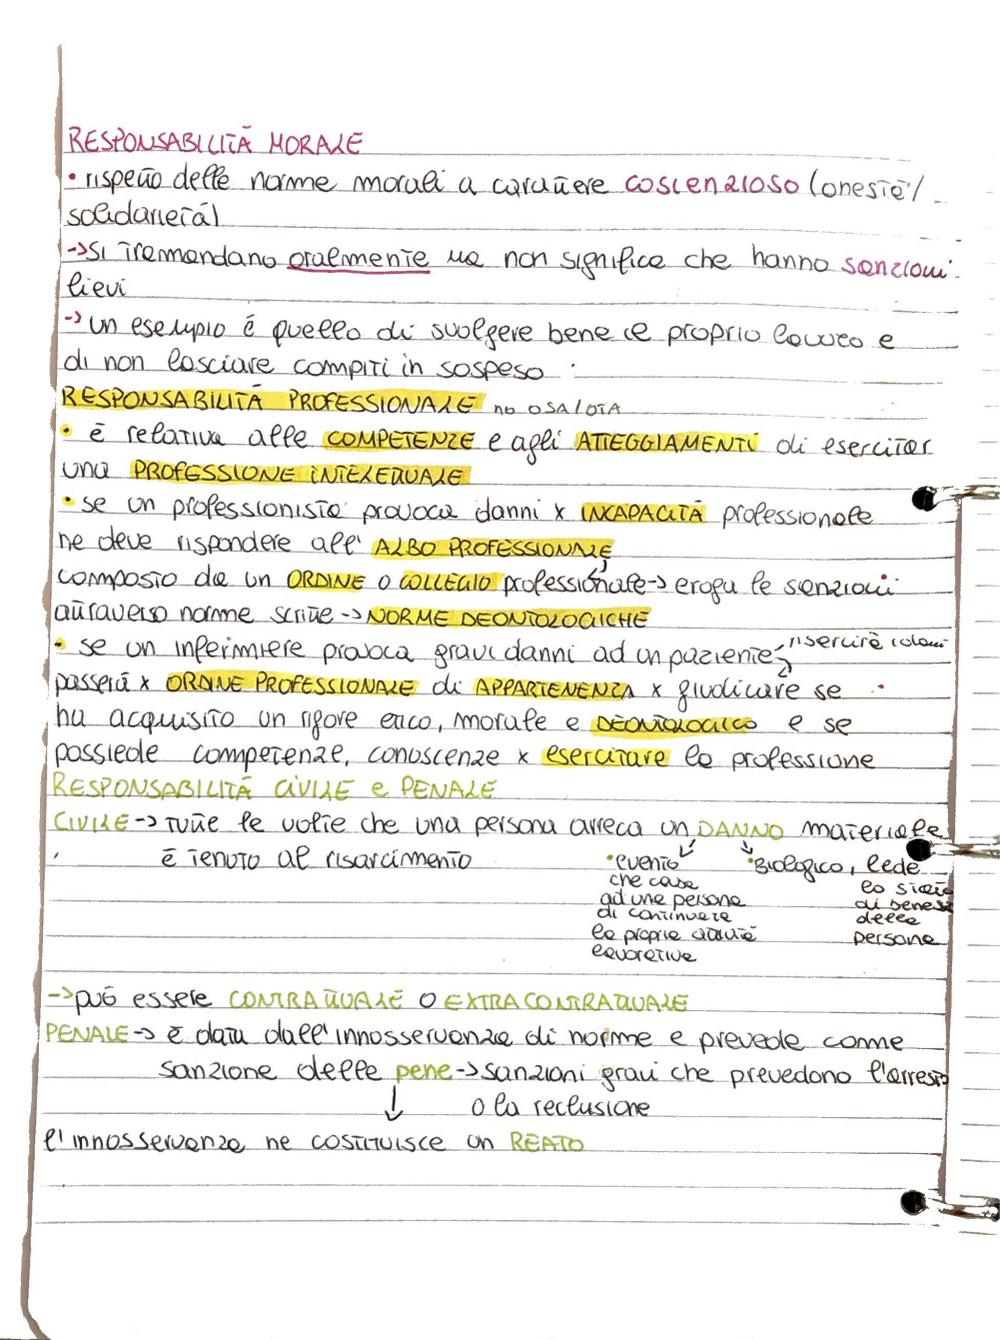 RESPONSABILITÀ MORALE
• rispetto delle norme morali a carattere coscienzioso (onestà/
solidarietà)
-> si tramandano oralmente ma non significa che hanno sanzioni
lievi
-> un esempio é quello di svolgere bene il proprio lavoro e
di non lasciare compiti in sospeso
RESPONSABILITÀ PROFESSIONALE no OSA/OTA
• è relativa alle COMPETENZE e agli ATTEGGIAMENTI di esercitar
una PROFESSIONE INTELETTUALE
• se un professionista provoca danni x INCAPACITÀ professionale
ne deve rispondere all' ALBO PROFESSIONALE
composto da un ORDINE o COLLEGIO professionale -> eroga le sanzioni
attraverso norme scritte -> NORME DEONTOLOGICHE
• se un infermiere provoca gravi danni ad un paziente
passerà x ORDINE PROFESSIONALE di APPARTENENZA x giudicare se
ha acquisito un rigore etico, morale e DEONTOLOGICO e se
possiede competenze, conoscenze x esercitare la professione
RESPONSABILITÀ CIVILE e PENALE
CIVILE -> tutte le volte che una persona arreca un DANNO materiale
è tenuto al risarcimento
• evento
che case
ad una persona
di continuare
la propria attività
lavorativa
• Biologico, lede
lo stato
di benes
della
persona
-> può essere CONTRATTUALE O EXTRACONTRATTUALE
PENALE -> è data dall'innosservanza di norme e prevede come
sanzione delle pene -> sanzioni gravi che prevedono l'arresto
o la reclusione
l'innosservanza ne costituisce un REATO